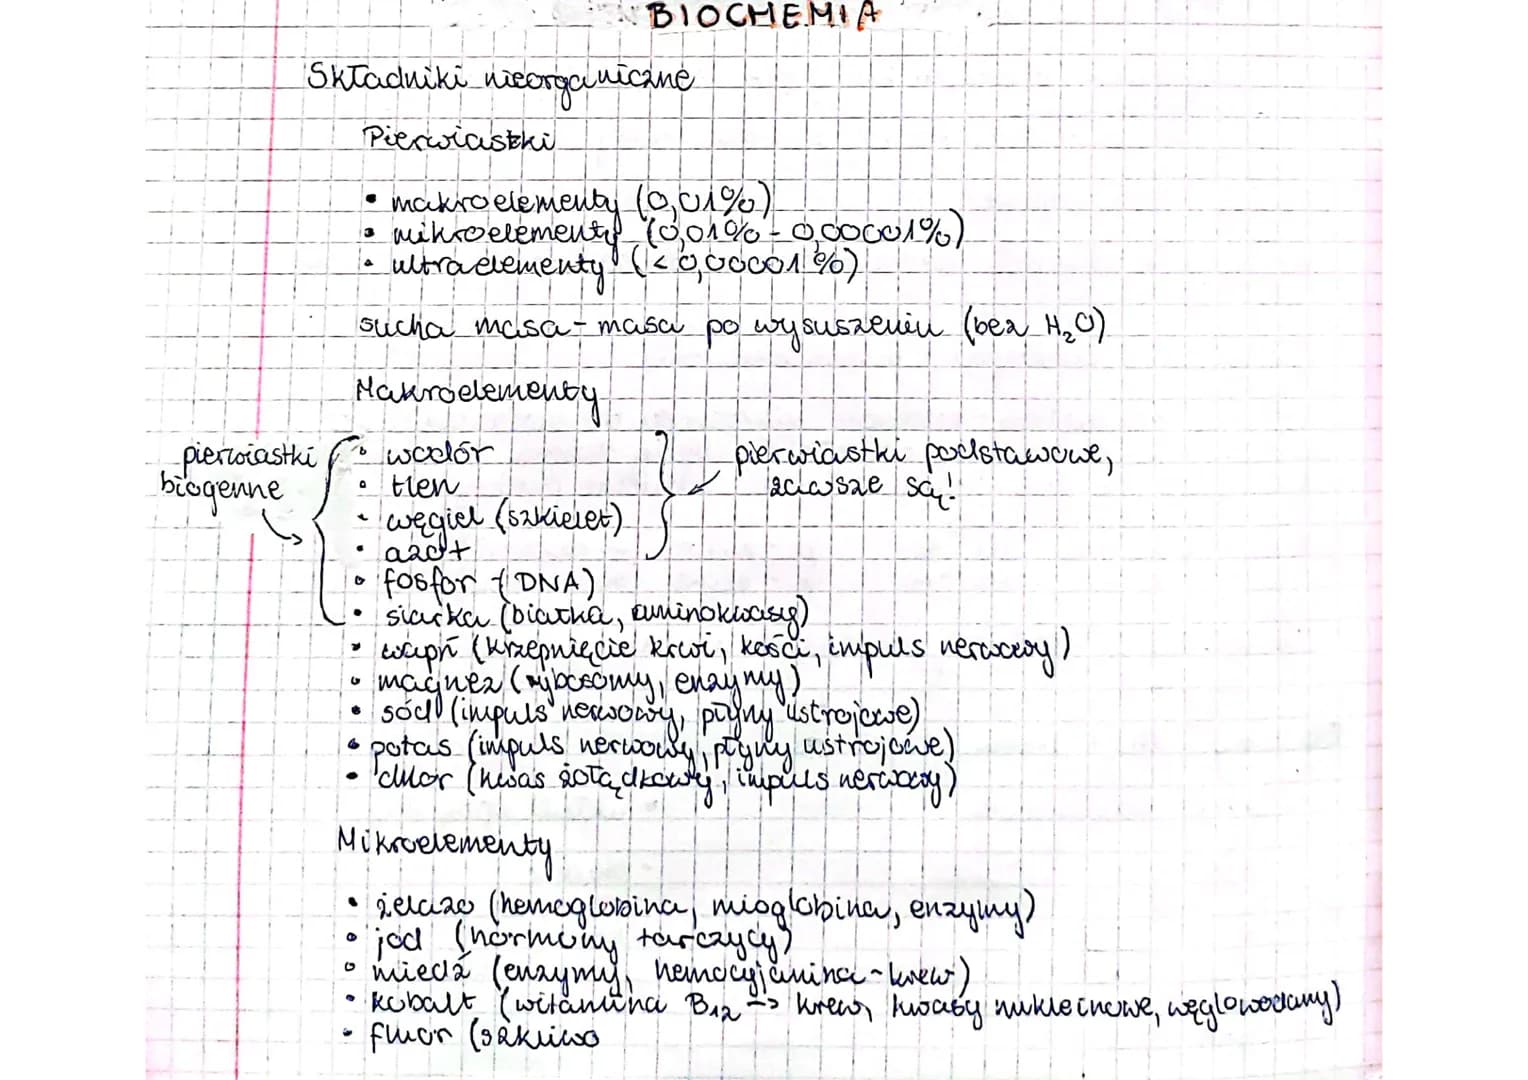 BIOCHEMIA
Składniki nieorganiczne
Pierwiastki
• makroelementy (0,01%)
• mikroelementy (0,01% - 0,00001%)
• ultraelementy (<0,00001%)
sucha masa - masa po wysuszeniu (bez H₂O)
Makroelementy
pierwiastki biogenne
• wodór
• tlen
• węgiel (szkielet)
• azot
pierwiastki podstawowe,
zawsze są!
• fosfor (DNA)
• siarka (białka, aminokwasy)
• wapń (krzepnięcie krwi, kości, impuls nerwowy)
• magnez (rybosomy, enzymy)
• sód (impuls nerwowy, płyny ustrojowe)
• potas (impuls nerwowy, płyny ustrojowe)
• chlor (kwas żołądkowy, impuls nerwowy)
Mikroelementy
• żelazo (hemoglobina, mioglobina, enzymy)
• jod (hormony tarczycy)
• miedź (enzymy, hemocyjanina - krew)
• kobalt (witamina B₁₂ -> krew, kwasy nukleinowe, węglowodany)
• fluor (szkliwo